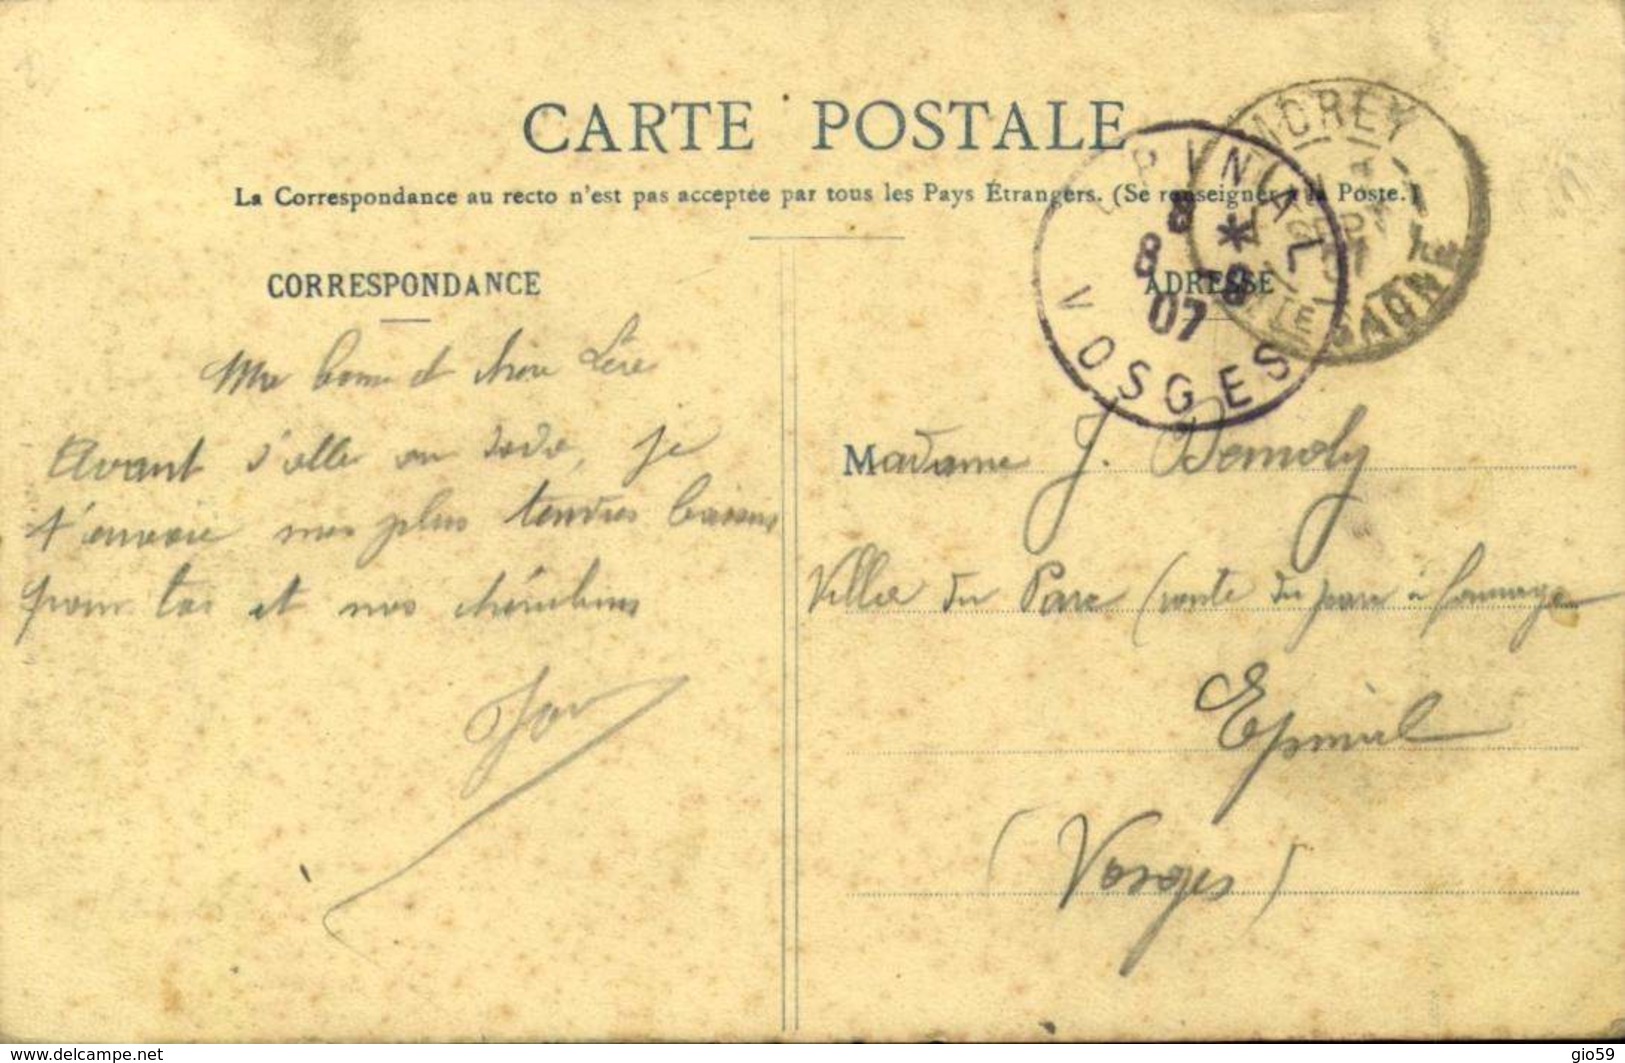 CARTE POSTALE
La Correspondance au recto n'est pas acceptée par tous les Pays Étrangers. (Se renseigner à la Poste.)
CORRESPONDANCE
ADRESSE
EPINAL
8 * 
8 8
07
VOSGES
MOREY
SAONE
Ma bonne et chère
Avant d'aller au dodo, je
t'envoie mes plus tendres baisers
pour toi et nos chérubins
Madame J. Demoly
Villa du Parc (route du parc à fourrage
Epinal
(Vosges)
www.delcampe.net
gio59